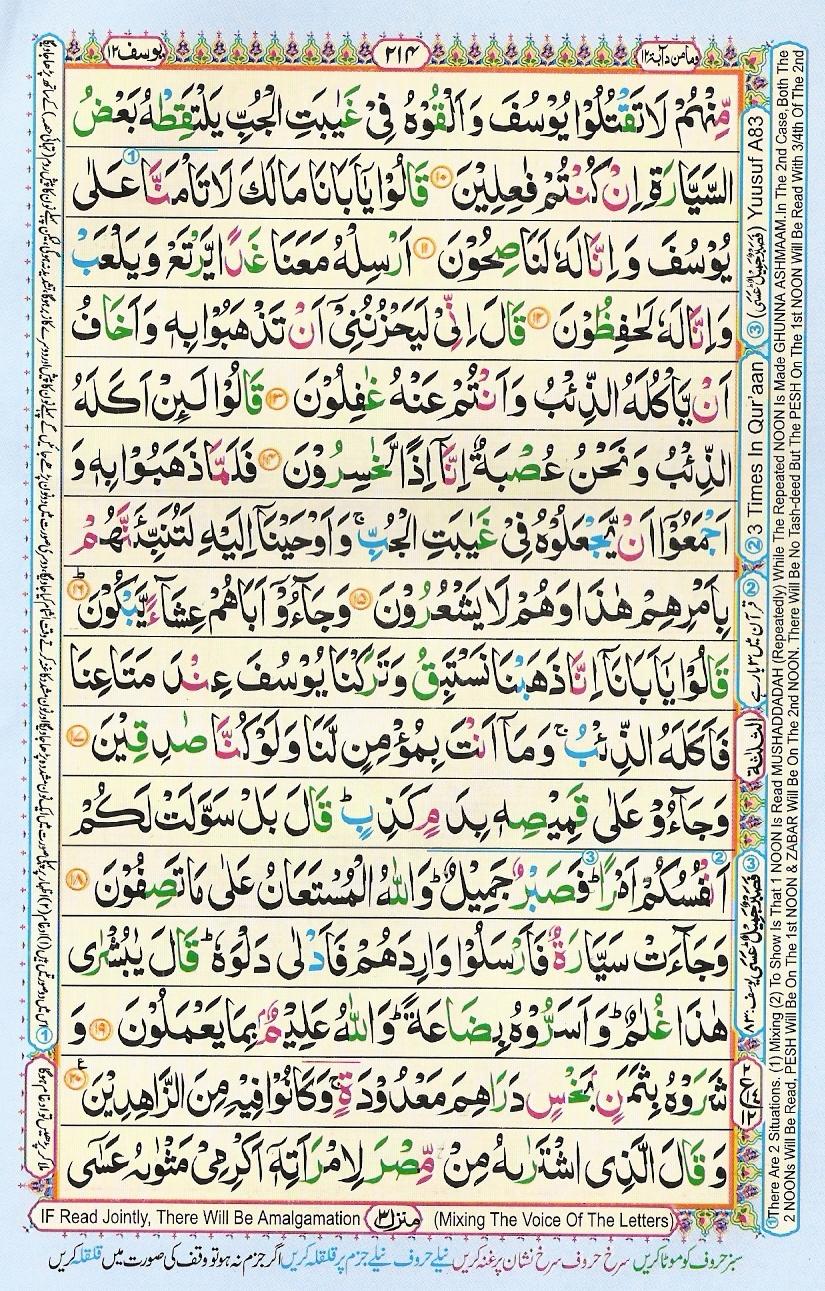 ومامن دآبۃ۱۲
۲۱۴
یوسف۱۲
مِّنْهُمْ لَا تَقْتُلُوْا يُوْسُفَ وَ اَلْقُوْهُ فِيْ غَيٰبَتِ الْجُبِّ يَلْتَقِطْهُ بَعْضُ
السَّيَّارَةِ اِنْ كُنْتُمْ فٰعِلِيْنَ ۱۰ قَالُوْا يٰۤاَبَانَا مَالَكَ لَا تَاْمَنَّا عَلٰى
يُوْسُفَ وَ اِنَّا لَهٗ لَنٰصِحُوْنَ ۱۱ اَرْسِلْهُ مَعَنَا غَدًا يَّرْتَعْ وَ يَلْعَبْ
وَ اِنَّا لَهٗ لَحٰفِظُوْنَ ۱۲ قَالَ اِنِّيْ لَيَحْزُنُنِيْۤ اَنْ تَذْهَبُوْا بِهٖ وَ اَخَافُ
اَنْ يَّاْكُلَهُ الذِّئْبُ وَ اَنْتُمْ عَنْهُ غٰفِلُوْنَ ۱۳ قَالُوْا لَىِٕنْ اَكَلَهُ
الذِّئْبُ وَ نَحْنُ عُصْبَةٌ اِنَّاۤ اِذًا لَّخٰسِرُوْنَ ۱۴ فَلَمَّا ذَهَبُوْا بِهٖ وَ
اَجْمَعُوْۤا اَنْ يَّجْعَلُوْهُ فِيْ غَيٰبَتِ الْجُبِّ ۚ وَ اَوْحَيْنَاۤ اِلَيْهِ لَتُنَبِّئَنَّهُمْ
بِاَمْرِهِمْ هٰذَا وَ هُمْ لَا يَشْعُرُوْنَ ۱۵ وَ جَآءُوْۤ اَبَاهُمْ عِشَآءً يَّبْكُوْنَ ؕ ۱۶
قَالُوْا يٰۤاَبَانَاۤ اِنَّا ذَهَبْنَا نَسْتَبِقُ وَ تَرَكْنَا يُوْسُفَ عِنْدَ مَتَاعِنَا
فَاَكَلَهُ الذِّئْبُ ۚ وَ مَاۤ اَنْتَ بِمُؤْمِنٍ لَّنَا وَ لَوْ كُنَّا صٰدِقِيْنَ ۱۷
وَ جَآءُوْ عَلٰى قَمِيْصِهٖ بِدَمٍ كَذِبٍ ؕ قَالَ بَلْ سَوَّلَتْ لَكُمْ
اَنْفُسُكُمْ اَمْرًا ؕ فَصَبْرٌ جَمِيْلٌ ؕ وَ اللّٰهُ الْمُسْتَعَانُ عَلٰى مَا تَصِفُوْنَ ۱۸
وَ جَآءَتْ سَيَّارَةٌ فَاَرْسَلُوْا وَارِدَهُمْ فَاَدْلٰى دَلْوَهٗ ؕ قَالَ يٰبُشْرٰى
هٰذَا غُلٰمٌ ؕ وَ اَسَرُّوْهُ بِضَاعَةً ؕ وَ اللّٰهُ عَلِيْمٌۢ بِمَا يَعْمَلُوْنَ ۱۹ وَ
شَرَوْهُ بِثَمَنٍۭ بَخْسٍ دَرَاهِمَ مَعْدُوْدَةٍ ۚ وَ كَانُوْا فِيْهِ مِنَ الزّٰهِدِيْنَ ۲۰ ع
وَ قَالَ الَّذِي اشْتَرٰىهُ مِنْ مِّصْرَ لِامْرَاَتِهٖۤ اَكْرِمِيْ مَثْوٰىهُ عَسٰۤى
IF Read Jointly, There Will Be Amalgamation منزل۳ (Mixing The Voice Of The Letters)
سبز حروف کو موٹا کریں سرخ حروف سرخ نشان پر غنہ کریں نیلے حروف نیلے جزم پر قلقلہ کریں اگر جزم نہ ہو تو وقف کی صورت میں قلقلہ کریں
② 3 Times In Qur'aan ③ Yuusuf A83
①There Are 2 Situations. (1) Mixing (2) To Show Is That 1 NOON Is Read MUSHADDADAH (Repeatedly) While The Repeated NOON Is Made GHUNNA ASHMAAM.In The 2nd Case,Both The
2 NOONs Will Be Read, PESH Will Be On The 1st NOON & ZABAR Will Be On The 2nd NOON. There Will Be No Tash-deed But The PESH On The 1st NOON Will Be Read With 3/4th Of The 2nd
② قرآن میں ۳ بار ہے
الثلثة